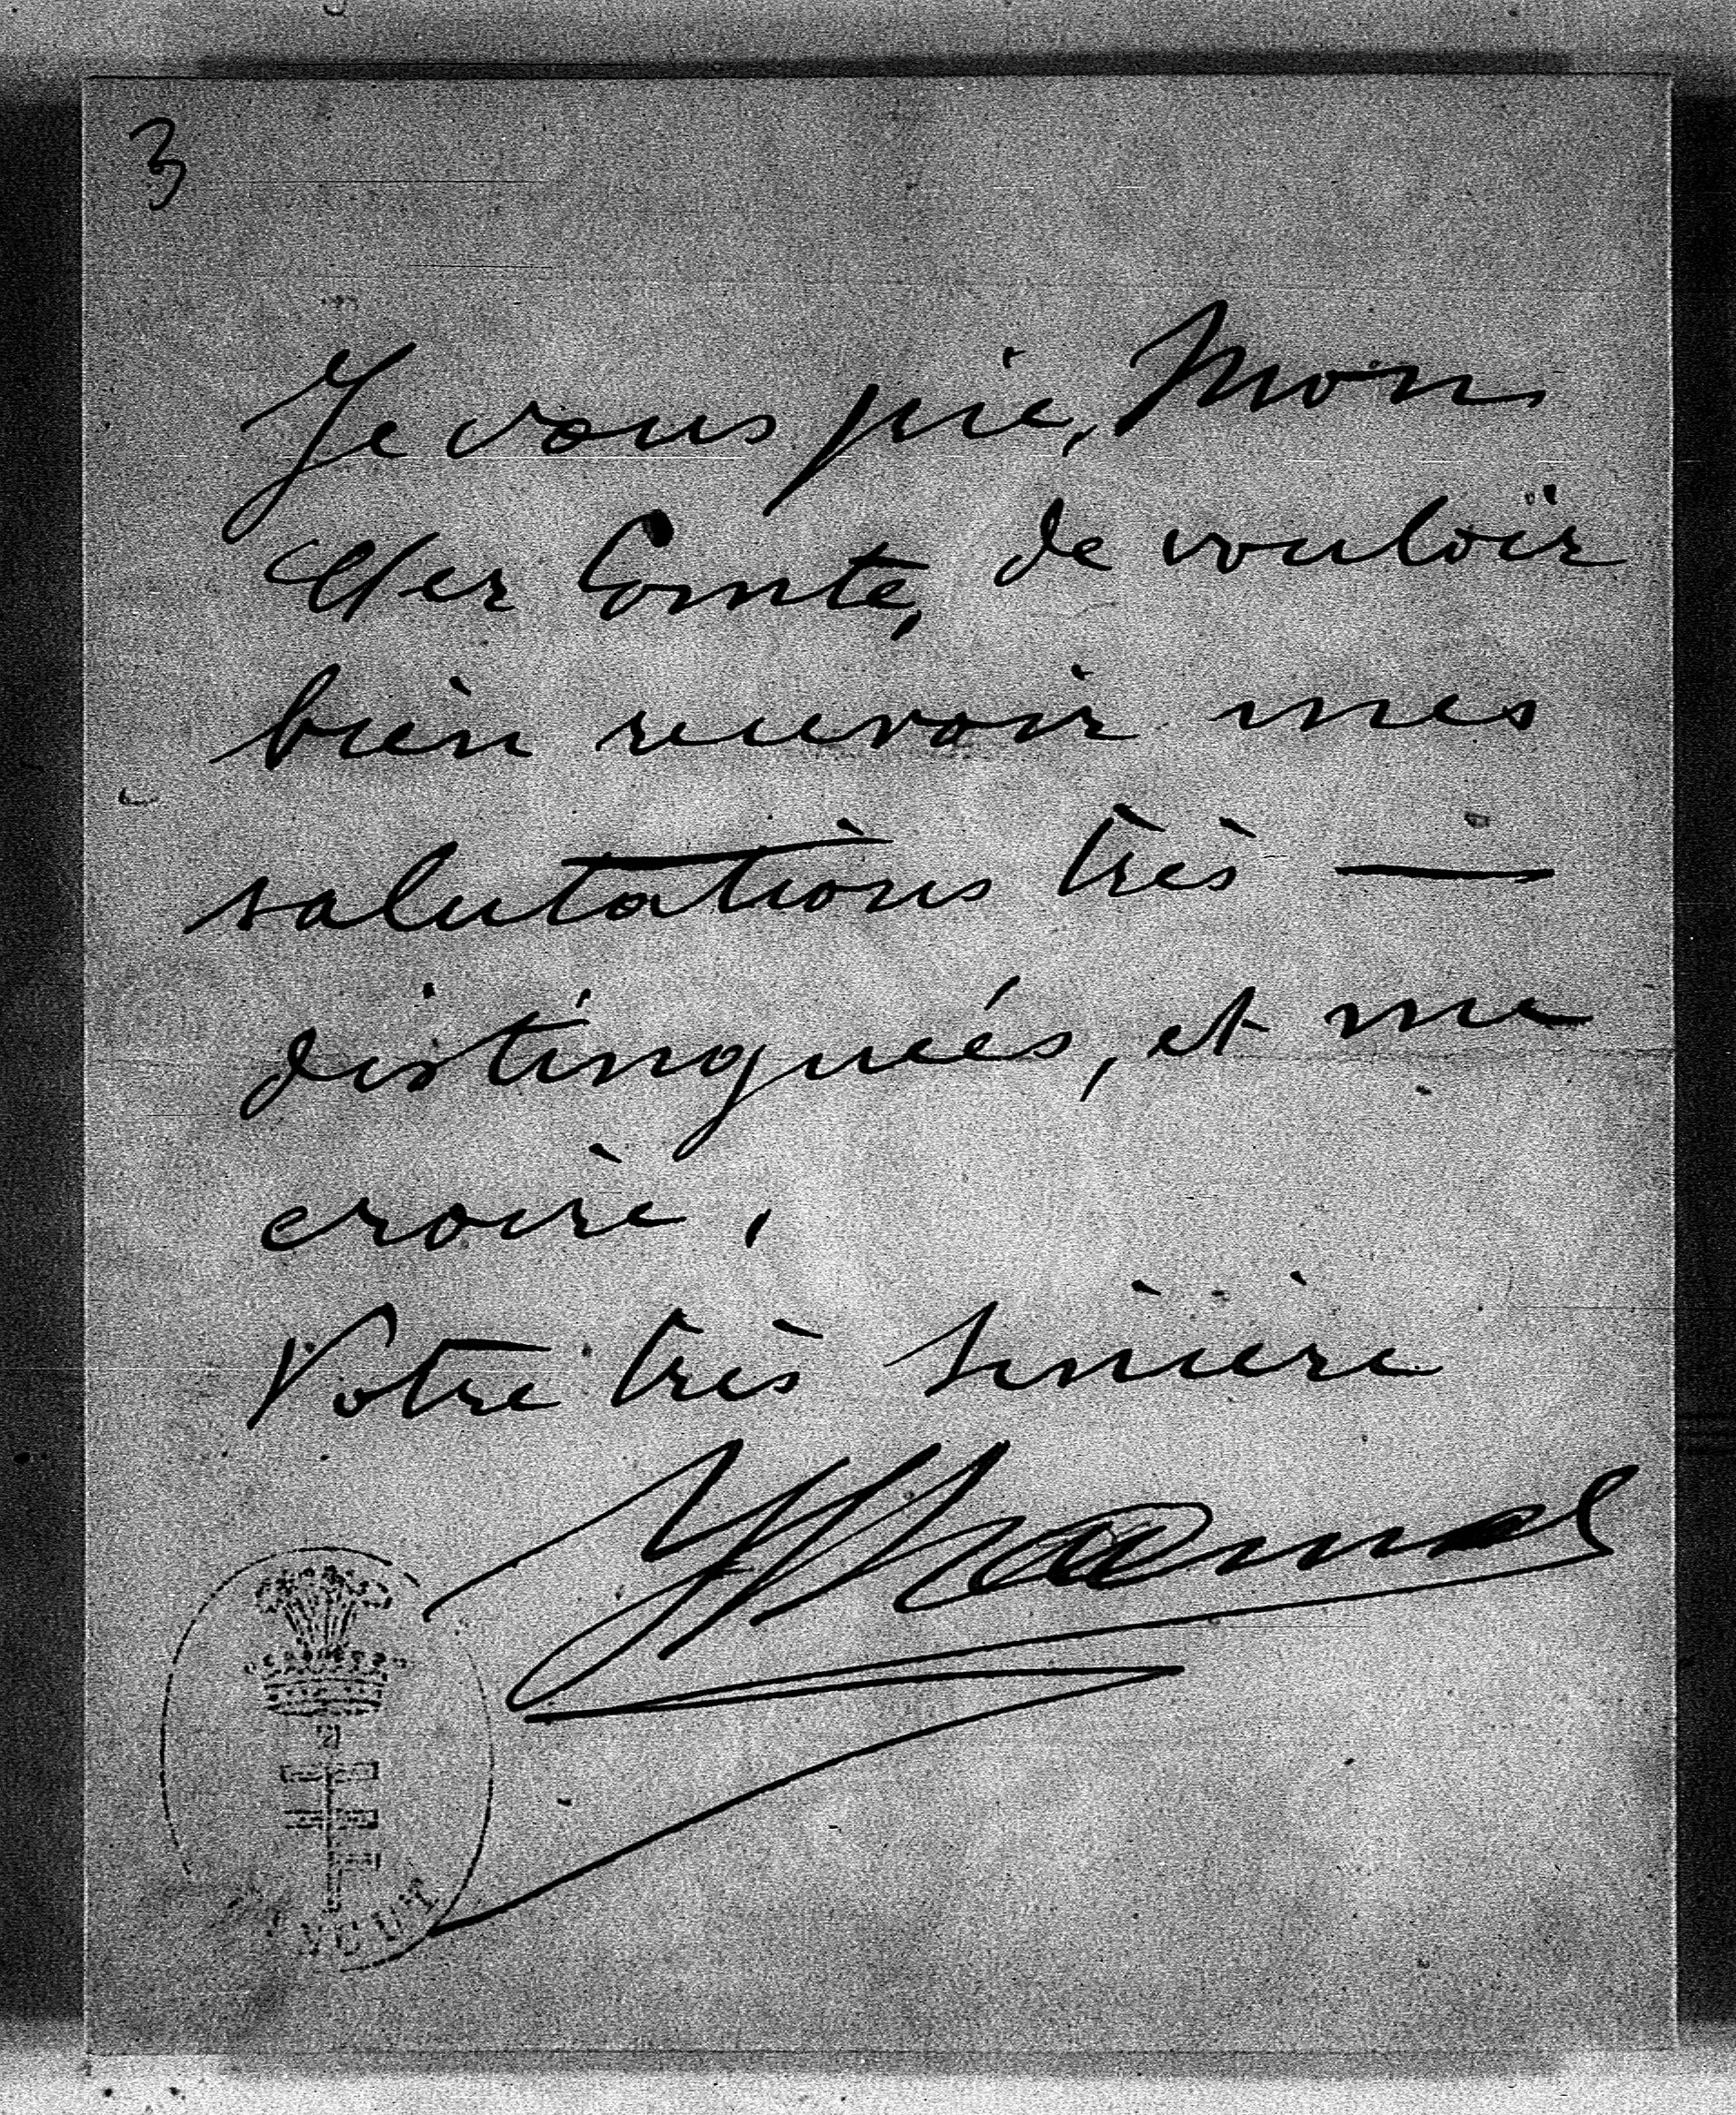 3
Je vous prie, Mon
Cher Comte, de vouloir
bien recevoir mes
salutations très —
distinguées, et me
croire,
Votre très sincère